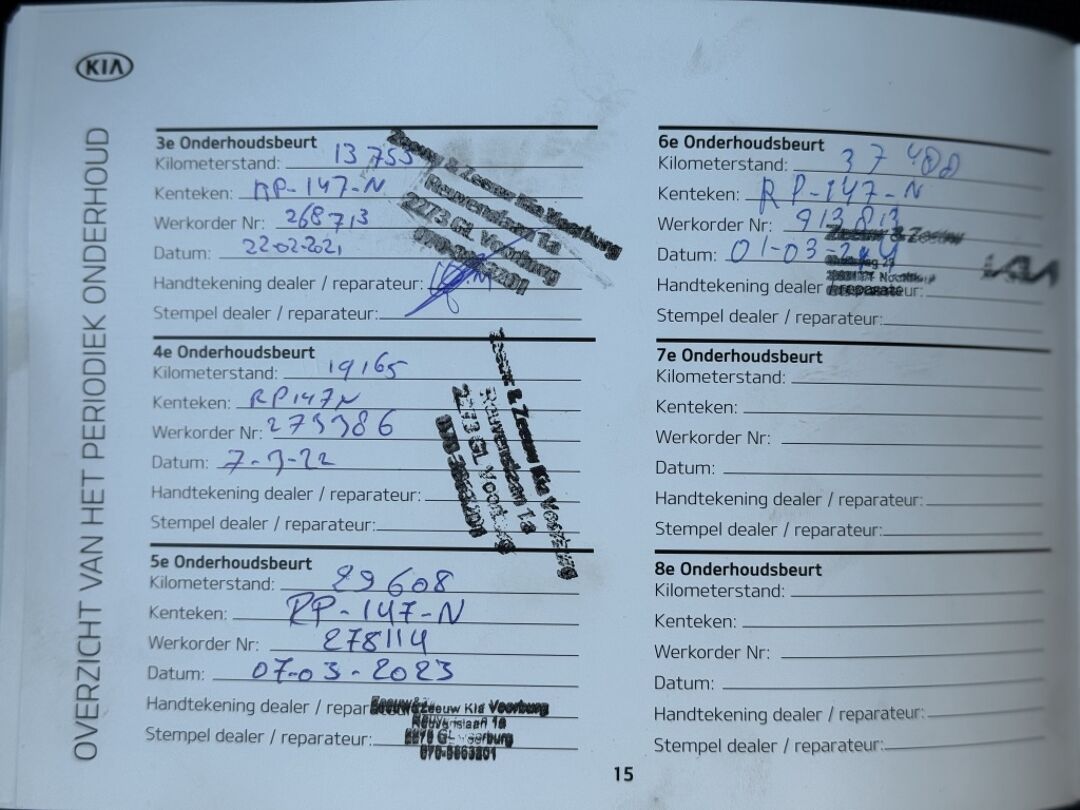 KIA
OVERZICHT VAN HET PERIODIEK ONDERHOUD
3e Onderhoudsbeurt
Kilometerstand: 13 755
Kenteken: RP-147-N
Werkorder Nr: 268713
Datum: 22-02-2021
Handtekening dealer / reparateur:
Stempel dealer / reparateur:
Zeeuw & Zeeuw Kia Voorburg
Rouvenslaan 1a
2273 GL Voorburg
4e Onderhoudsbeurt
Kilometerstand: 19165
Kenteken: RP147N
Werkorder Nr:
Datum: 7-3-22
Handtekening dealer / reparateur:
Stempel dealer / reparateur:
Zeeuw & Zeeuw Kia Voorburg
1a
2273 GL Voorburg
5e Onderhoudsbeurt
Kilometerstand: 29608
Kenteken: RP-147-N
Werkorder Nr: 278114
Datum: 07-03-2023
Handtekening dealer /
Stempel dealer / reparateur:
Zeeuw Kia Voorburg
1a
GL Voorburg
6e Onderhoudsbeurt
Kilometerstand: 37 400
Kenteken: RP-147-N
Werkorder Nr: 913813
Datum: 01-03-
Handtekening dealer
Stempel dealer / reparateur:
Zeeuw & Zeeuw
KIA
7e Onderhoudsbeurt
Kilometerstand:
Kenteken:
Werkorder Nr:
Datum:
Handtekening dealer / reparateur:
Stempel dealer / reparateur:
8e Onderhoudsbeurt
Kilometerstand:
Kenteken:
Werkorder Nr:
Datum:
Handtekening dealer / reparateur:
Stempel dealer / reparateur:
15